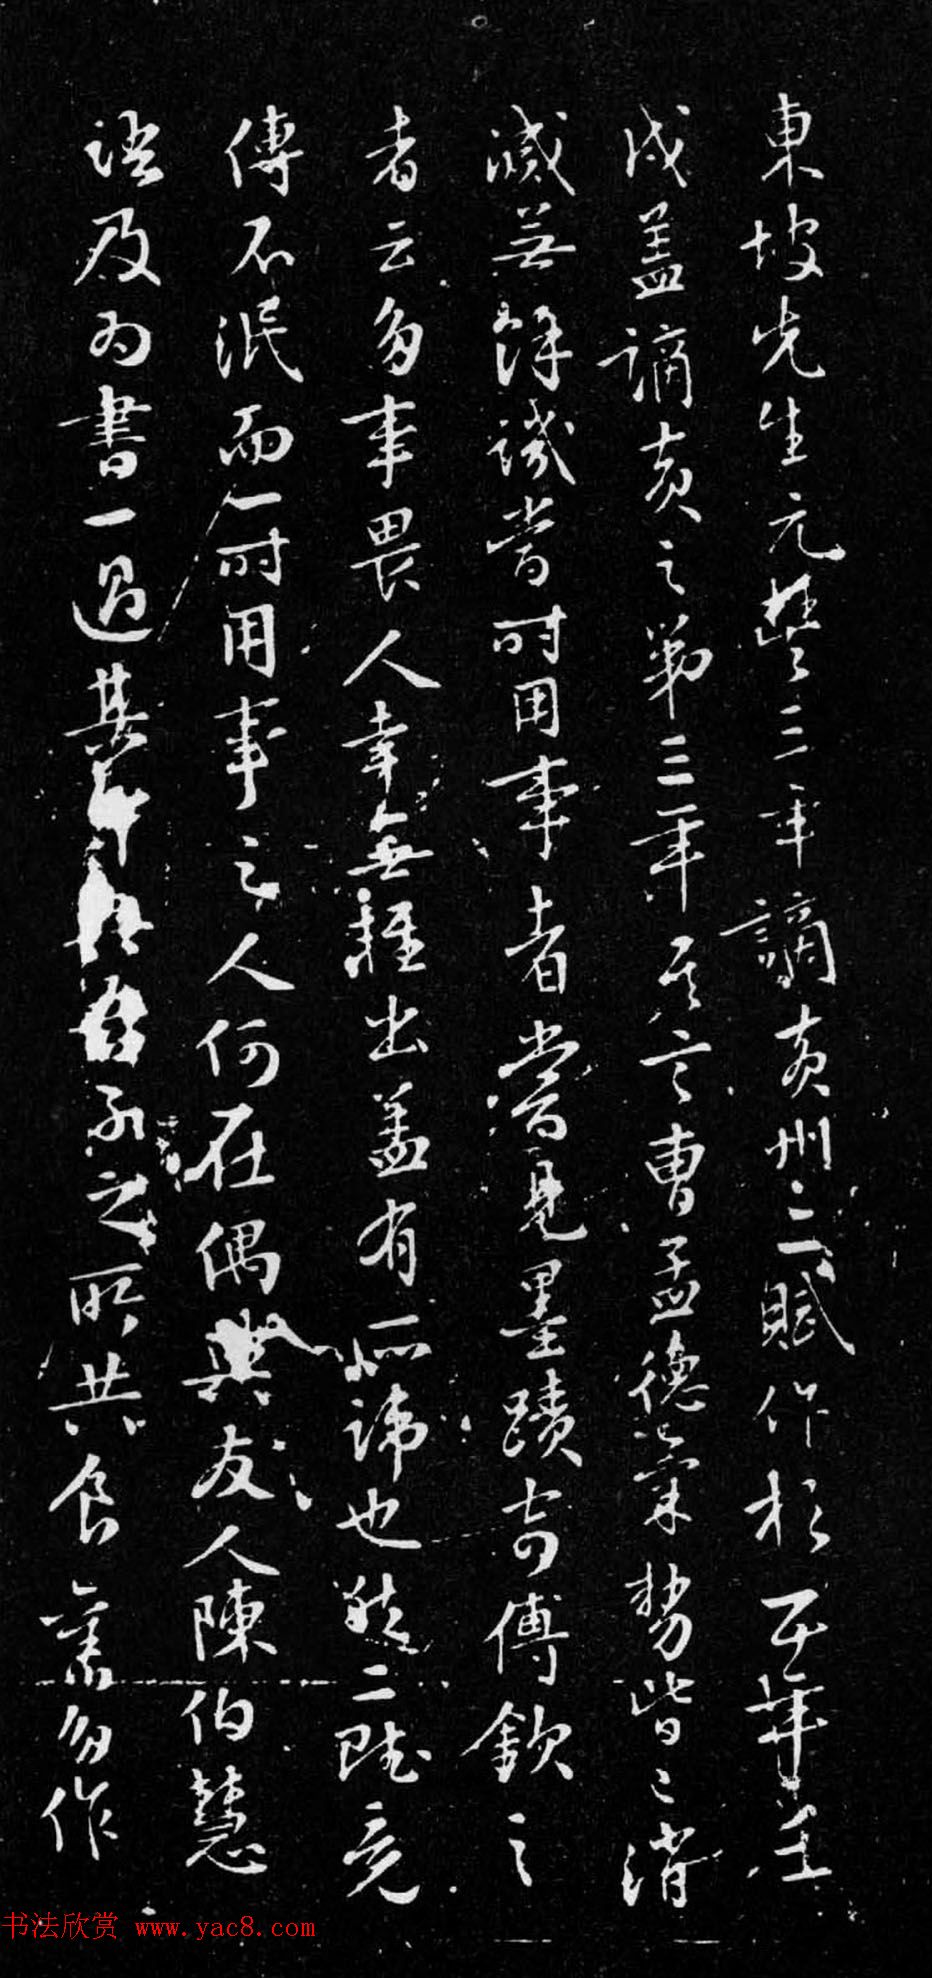 東坡先生元豐三年謫黃州二賦作於五年壬
戌盖謫黃之第三年其言曹孟德氣勢皆已消
滅無餘譏當時用事者嘗見墨蹟寄傅欽之
者云多事畏人幸無輕出盖有所諱也然二賦竟
傳不泯而一時用事之人何在偶與友人陳伯慧
語及為書一過其中與吾子之所共食舊多作
书法欣赏 www.yac8.com